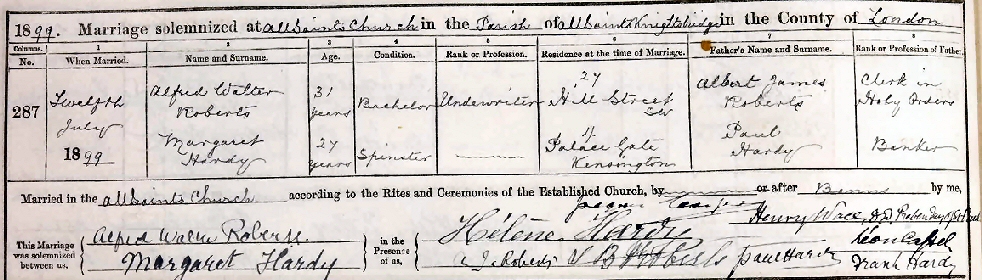 1899. Marriage solemnized at All Saints Church in the Parish of All Saints Knightsbridge in the County of London
Columns. 1 2 3 4 5 6 7 8
No. When Married. Name and Surname. Age. Condition. Rank or Profession. Residence at the time of Marriage. Father's Name and Surname. Rank or Profession of Father.
287 Twelfth July 1899 Alfred Walter Roberts 31 years Bachelor Underwriter 27 Hill Street Albert James Roberts Clerk in Holy Orders
Margaret Hardy 27 years Spinster Palace Gate Kensington Paul Hardy Banker
Married in the All Saints Church according to the Rites and Ceremonies of the Established Church, by or after Banns by me,
Henry Wace, D.D.
This Marriage was solemnized between us, Alfred Walter Roberts Margaret Hardy in the Presence of us, Hélène Hardy Roberts Roberts Paul Hardy Léon Cassel Frank Hardy